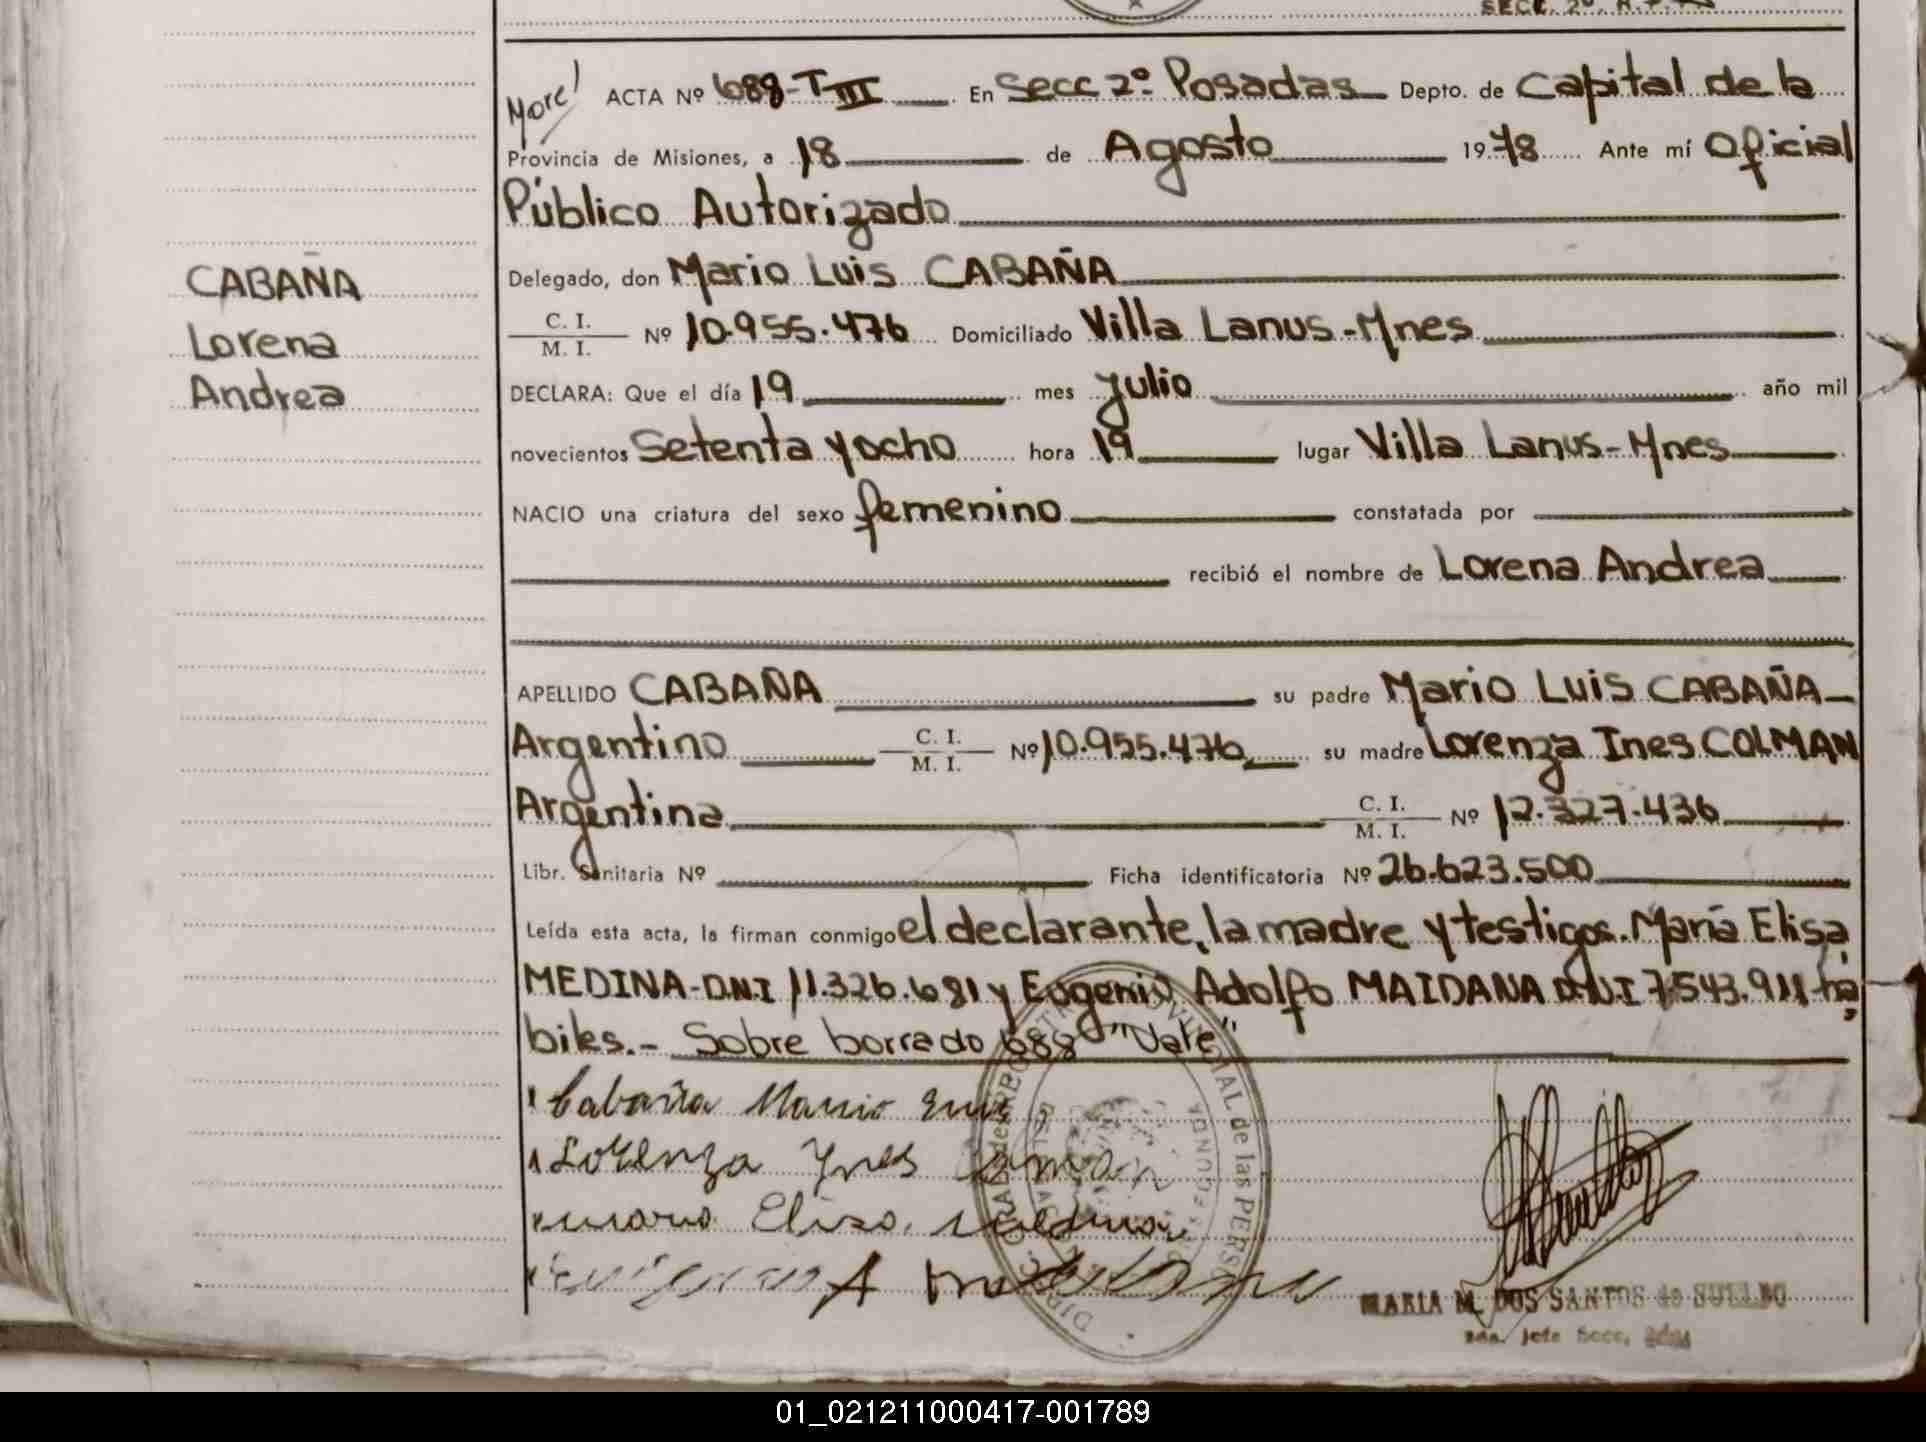 SECC. 2º. R.P.
ACTA Nº 688-T III En Secc 2º Posadas Depto. de Capital de la
Provincia de Misiones, a 18 de Agosto 1978 Ante mí Oficial
Público Autorizado
CABAÑA
Lorena
Andrea
Delegado, don Mario Luis CABAÑA
C. I.
M. I. Nº 10.955.476 Domiciliado Villa Lanus-Mnes
DECLARA: Que el día 19 mes Julio año mil
novecientos Setenta y ocho hora 19 lugar Villa Lanus-Mnes
NACIO una criatura del sexo femenino constatada por
recibió el nombre de Lorena Andrea
APELLIDO CABAÑA su padre Mario Luis CABAÑA
Argentino C. I. M. I. Nº 10.955.476 su madre Lorenza Ines COLMAN
Argentina C. I. M. I. Nº 12.327.436
Libr. Sanitaria Nº Ficha identificatoria Nº 26.623.500
Leída esta acta, la firman conmigo el declarante, la madre y testigos. María Elisa
MEDINA-D.N.I 11.326.681 y Eugenio Adolfo MAIDANA D.N.I 7.543.911 há
biles.- Sobre borrado 688 "Vale"
Cabaña Mario Luis
Lorenza Ynes Colman
maria Elisa medina
MARIA M. DOS SANTOS de SUELDO
2da. Jefe Secc. 2da
01_021211000417-001789